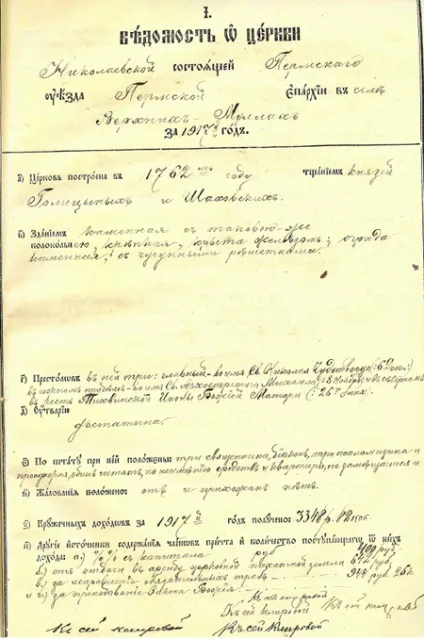 І.
ВѢДОМОСТЬ Ѿ ЦЕРКВИ
Николаевской состоѧщей Пермскаго
оуѣзда Пермской Епархіи въ селѣ
Верхнихъ-Муллахъ
за 1917й годъ.
а) Церковь построена въ 1762мъ году тщанiемъ князей
Голицыныхъ и Шаховскихъ.
в) Зданiемъ каменная съ таковою-же
колокольнею, крѣпкая, крыта желѣзомъ; ограда
каменная, съ чугунными рѣшетками.
г) Престоловъ въ ней три: главный-во имя Св. Николая Чудотворца (: 6 Дек. :)
въ южномъ придѣлѣ-во имя Св. Архистратига Михаила (: 8 Ноября :) и въ сѣверномъ
въ честь Тихвинской Иконы Божіей Матери (: 26 Iюня :).
д) Оутварiю
достаточна.
е) По штатꙋ при ней положены: три Священника, діаконъ, три псаломщика и
просфорня,
ѕ) Жалованiя положено: отъ прихожанъ нѣтъ.
з) Кружечныхъ доходовъ за 1917й годъ получено: 3348 р. 12 коп.
и) Другiе источники содержанiя членовъ причта и количество поступающагѡ ѿ нихъ
дохода: а) %% съ капитала руб
б) отъ отдачи въ аренду церковной пахатной земли руб.
в) за исправленіе обязательныхъ требъ 944 руб. 25 к.
и г) за преподаваніе Закона Божія
Къ сей
Къ сей Къ сей
Къ сей Къ сей